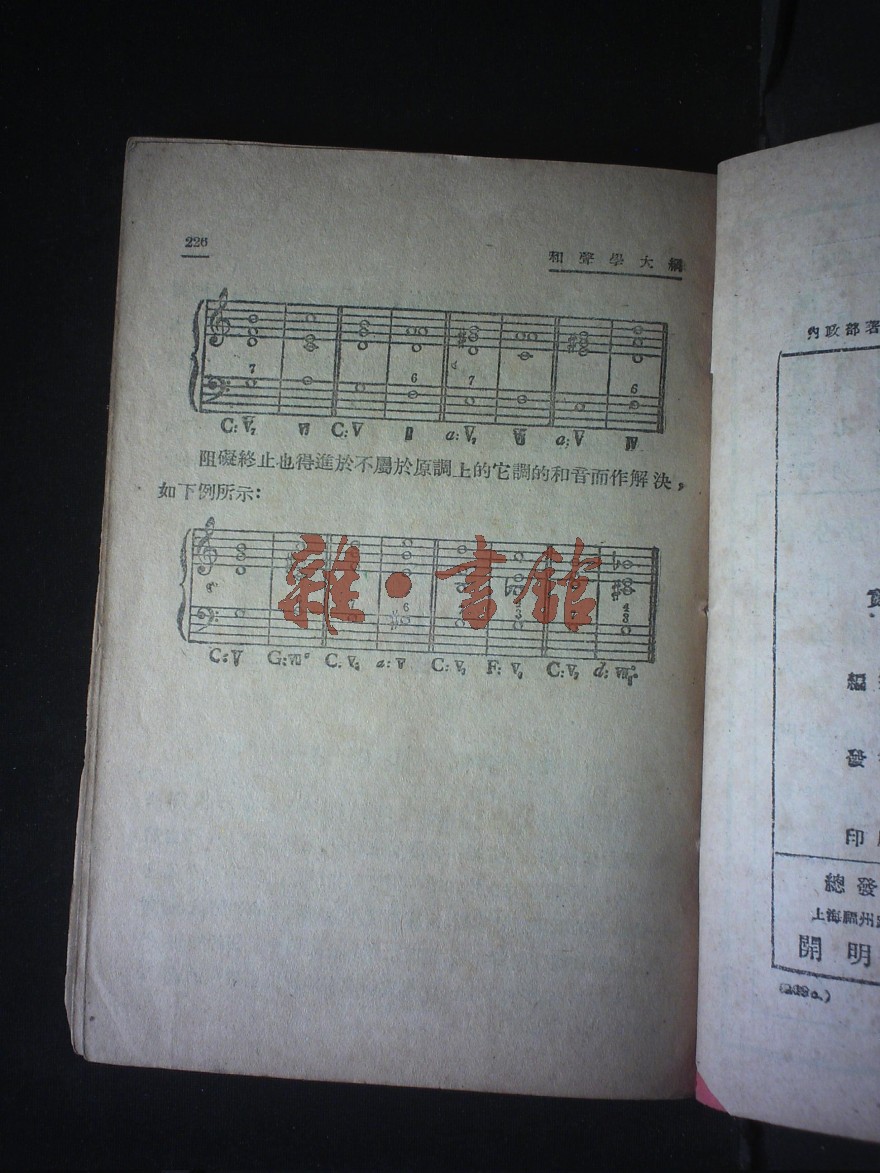 226
和聲學大綱
7 6 7 6
C: V₇ VI C: V II a: V₇ VI a: V IV
阻礙終止也得進於不屬於原調上的它調的和音而作解決，
如下例所示：
雜·書館
6 7 4
3
C: V G: VII° C: V₇ a: V C: V₇ F: V₇ C: V₇ d: VII°
內政部著
編
發
印
總發
上海福州
開明